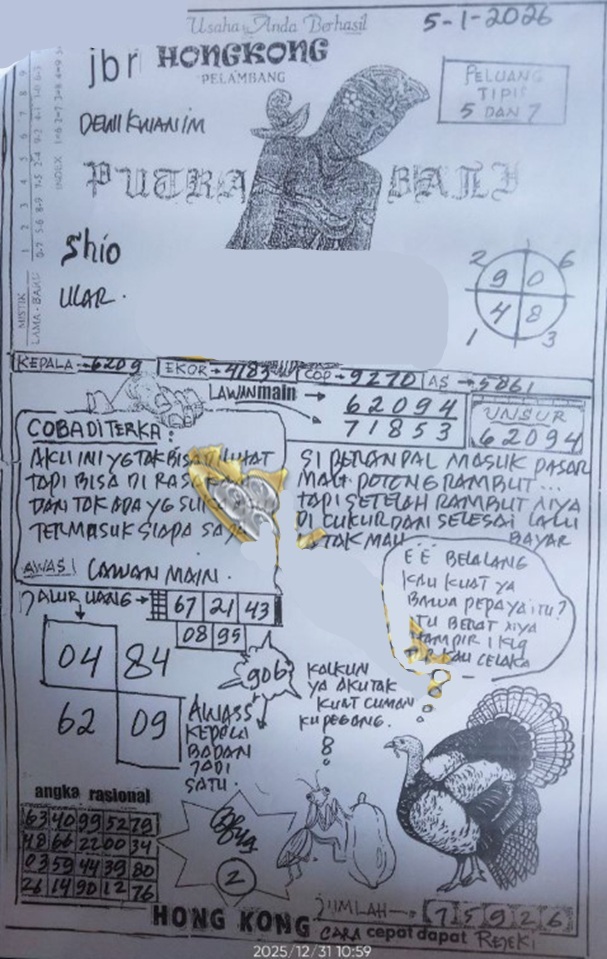 Usaha Anda Berhasil
5-1-2026
jbr HONGKONG
PELAMBANG
PELUANG
TIPIS
5 DAN 7
DEWI KWANIM
PUTRA BALI
Shio
ULAR.
MISTIK
LAMA - BARU
INDEX
2 6
9 0
4 8
1 3
KEPALA → 6209 EKOR → 4183 COP → 9270 AS → 5861
LAWAN main →
62094
71853
UNSUR
62094
COBA DITERKA:
AKU INI YG TAK BISA DI LIHAT
TAPI BISA DI
DAN TAK ADA YG
TERMASUK SIAPA SAJA
AWAS! LAWAN MAIN.
SI MASUK PASAR
MAU POTONG RAMBUT...
TAPI SETELAH RAMBUT NYA
DI CUKUR DAN SELESAI LALU
TAK MAU BAYAR
EE BELALANG
KAU KUAT YA
BAWA PEPAYA ITU?
ITU BERAT NYA
HAMPIR 1 KLG
KAU CELAKA
JALUR UANG → 67 21 43
08 95
04 84
62 09
906
AWASS
KEPALA
BADAN
JADI
SATU.
KALKUN
YA AKU TAK
KUAT CUMAN
KU PEGANG.
angka rasional
63 40 99 52 79
48 66 22 00 34
03 59 44 39 80
26 14 90 12 76
2
JUMLAH → 7 5 9 2 6
HONG KONG CARA cepat dapat REJEKI
2025/12/31 10:59